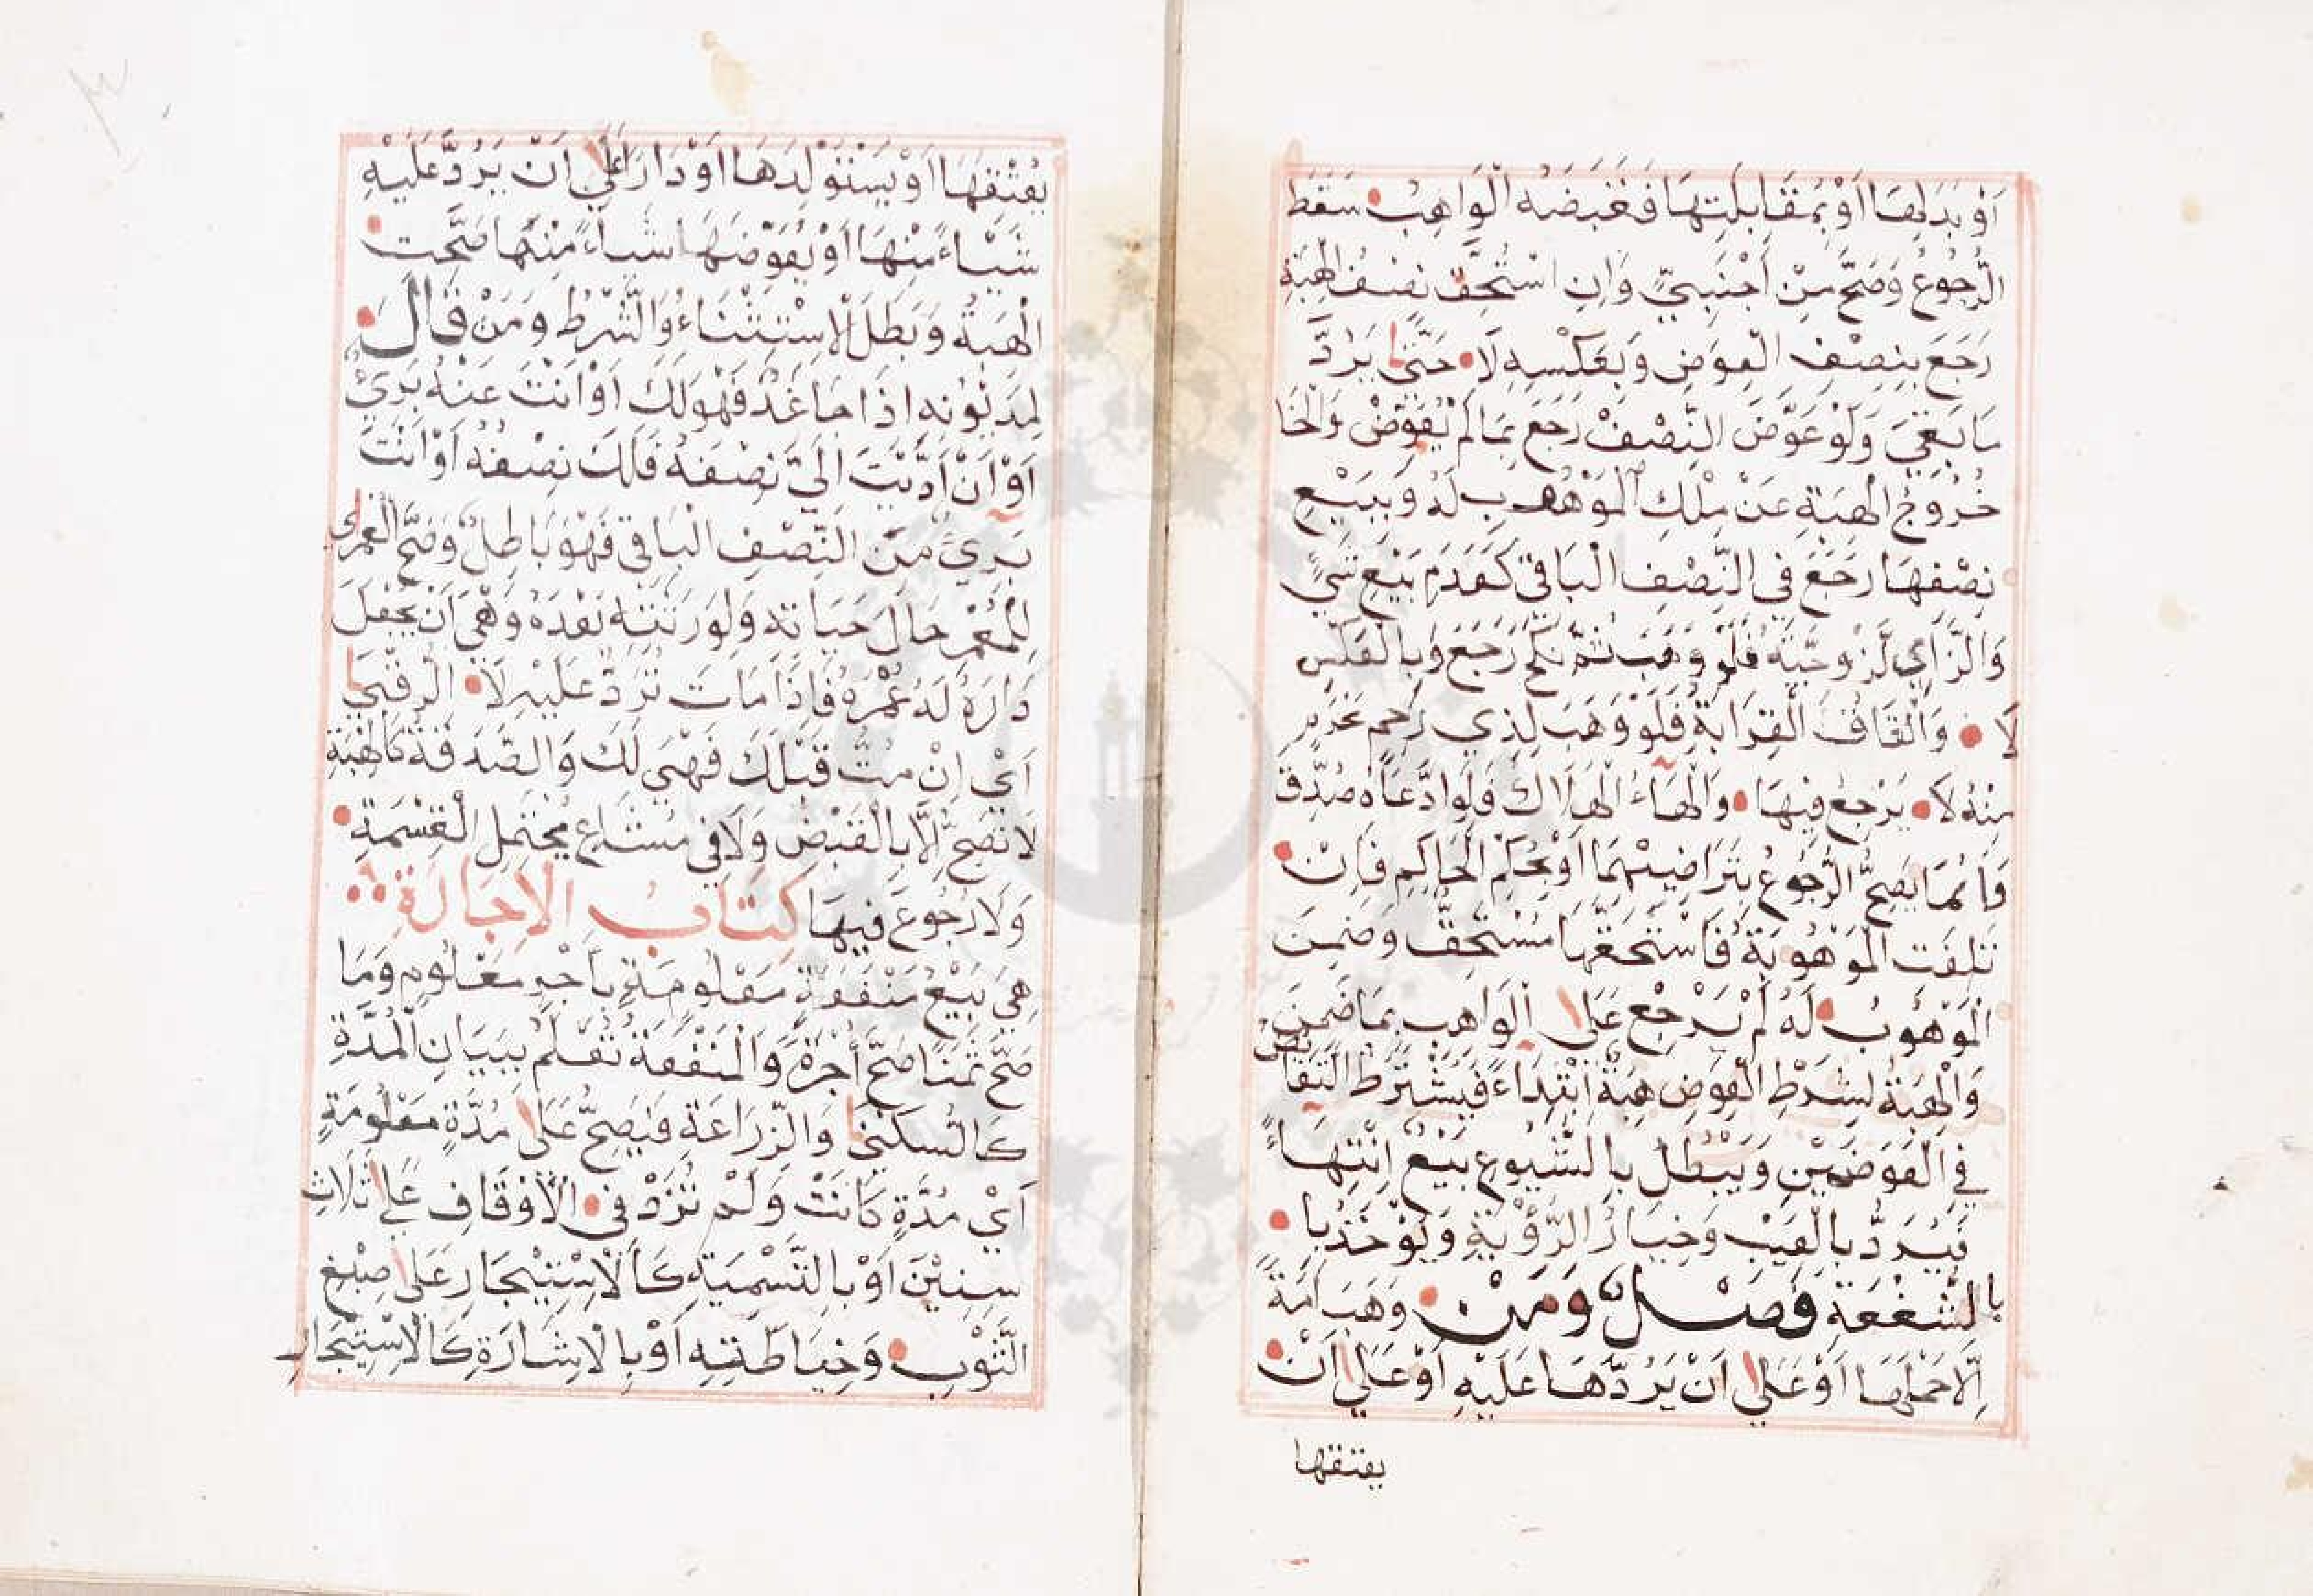 اَوْ بَدَلِهَا اَوْ بِمُقَابَلَتِهَا فَقَبَضَهُ الْوَاهِبُ سَقَطَ
الرُّجُوْعُ وَصَحَّ مِنْ اَجْنَبِيٍّ وَاِنِ اسْتُحِقَّ نِصْفُ الْهِبَةِ
رَجَعَ بِنِصْفِ الْعِوَضِ وَبِعَكْسِهِ لَا حَتّٰى يَرُدَّ
مَا بَقِيَ وَلَوْ عَوَّضَ النِّصْفَ رَجَعَ بِمَا لَمْ يُعَوِّضْ وَالْخَا
خُرُوْجُ الْهِبَةِ عَنْ مِلْكِ الْمَوْهُوْبِ لَهُ وَبِبَيْعِ
نِصْفِهَا رَجَعَ فِي النِّصْفِ الْبَاقِيْ كَعَدَمِ بَيْعِ شَيْءٍ
وَالزَّايُ الزَّوْجِيَّةُ فَلَوْ وَهَبَ ثُمَّ نَكَحَ رَجَعَ وَبِالْعَكْسِ
لَا وَالْقَافُ الْقَرَابَةُ فَلَوْ وَهَبَ لِذِيْ رَحِمٍ مَحْرَمٍ
مِنْهُ لَا يَرْجِعُ فِيْهَا وَالْهَاءُ الْهَلَاكُ فَلَوِ ادَّعَاهُ صُدِّقَ
وَاِنَّمَا يَصِحُّ الرُّجُوْعُ بِتَرَاضِيْهِمَا اَوْ بِحُكْمِ الْحَاكِمِ فَاِنْ
تَلِفَتِ الْمَوْهُوْبَةُ فَاسْتَحَقَّهَا مُسْتَحِقٌّ وَضَمِنَ
الْمَوْهُوْبُ لَهُ لَمْ يَرْجِعْ عَلَى الْوَاهِبِ بِمَا ضَمِنَ
وَالْهِبَةُ بِشَرْطِ الْعِوَضِ هِبَةٌ اِبْتِدَاءً فَيُشْتَرَطُ التَّقَابُضُ
فِي الْعِوَضَيْنِ وَيَبْطُلُ بِالشُّيُوْعِ بَيْعٌ اِنْتِهَاءً
فَيُرَدُّ بِالْعَيْبِ وَخِيَارُ الرُّؤْيَةِ وَيُؤْخَذُ با
بالشُّفْعَةِ فَصْلٌ وَمَنْ وَهَبَ اَمَةً
اِلَّا حَمْلَهَا اَوْ عَلٰى اَنْ يَرُدَّهَا عَلَيْهِ اَوْ عَلٰى اَنْ
يعتقها
يُعْتِقَهَا اَوْ يَسْتَوْلِدَهَا اَوْ دَارًا عَلٰى اَنْ يَرُدَّ عَلَيْهِ
شَيْئًا مِنْهَا اَوْ يُعَوِّضَهَا شَيْئًا مِنْهَا صَحَّتِ
الْهِبَةُ وَبَطَلَ الْاِسْتِثْنَاءُ وَالشَّرْطُ وَمَنْ قَالَ
لِمَدْيُوْنِهِ اِذَا جَا غَدٌ فَهُوَ لَكَ اَوْ اَنْتَ عَنْهُ بَرِيْءٌ
اَوْ اَنْ اَدَّيْتَ اِلَيَّ نِصْفَهُ فَلَكَ نِصْفُهُ اَوْ اَنْتَ
بَرِيْءٌ مِنَ النِّصْفِ الْبَاقِيْ فَهُوَ بَاطِلٌ وَصَحَّ الْعُمْرٰى
لِلْمُعْمَرِ حَالَ حَيَاتِهِ وَلِوَرَثَتِهِ بَعْدَهُ وَهِيَ اَنْ يَجْعَلَ
دَارَهُ لَهُ عُمُرَهُ فَاِذَا مَاتَ تُرَدُّ عَلَيْهِ لَا الرُّقْبٰى
اَيْ اِنْ مُتُّ قَبْلَكَ فَهِيَ لَكَ وَالصَّدَقَةُ كَالْهِبَةِ
لَا تَصِحُّ اِلَّا بِالْقَبْضِ وَلَا فِي مُشَاعٍ يَحْتَمِلُ الْقِسْمَةَ
وَلَا رُجُوْعَ فِيْهَا كِتَابُ الْاِجَارَةِ
هِيَ بَيْعُ مَنْفَعَةٍ مَعْلُوْمَةٍ بِاَجْرٍ مَعْلُوْمٍ وَمَا
صَحَّ ثَمَنًا صَحَّ اُجْرَةً وَالْمَنْفَعَةُ تُعْلَمُ بِبَيَانِ الْمُدَّةِ
كَالسُّكْنٰى وَالزِّرَاعَةِ فَيَصِحُّ عَلٰى مُدَّةٍ مَعْلُوْمَةٍ
اَيْ مُدَّةٍ كَانَتْ وَلَمْ تُزَدْ فِي الْاَوْقَافِ عَلٰى ثَلَاثِ
سِنِيْنَ اَوْ بِالتَّسْمِيَةِ كَالْاِسْتِيْجَارِ عَلٰى صِبْغِ
الثَّوْبِ وَخِيَاطَتِهِ اَوْ بِالْاِشَارَةِ كَالْاِسْتِيْجَارِ